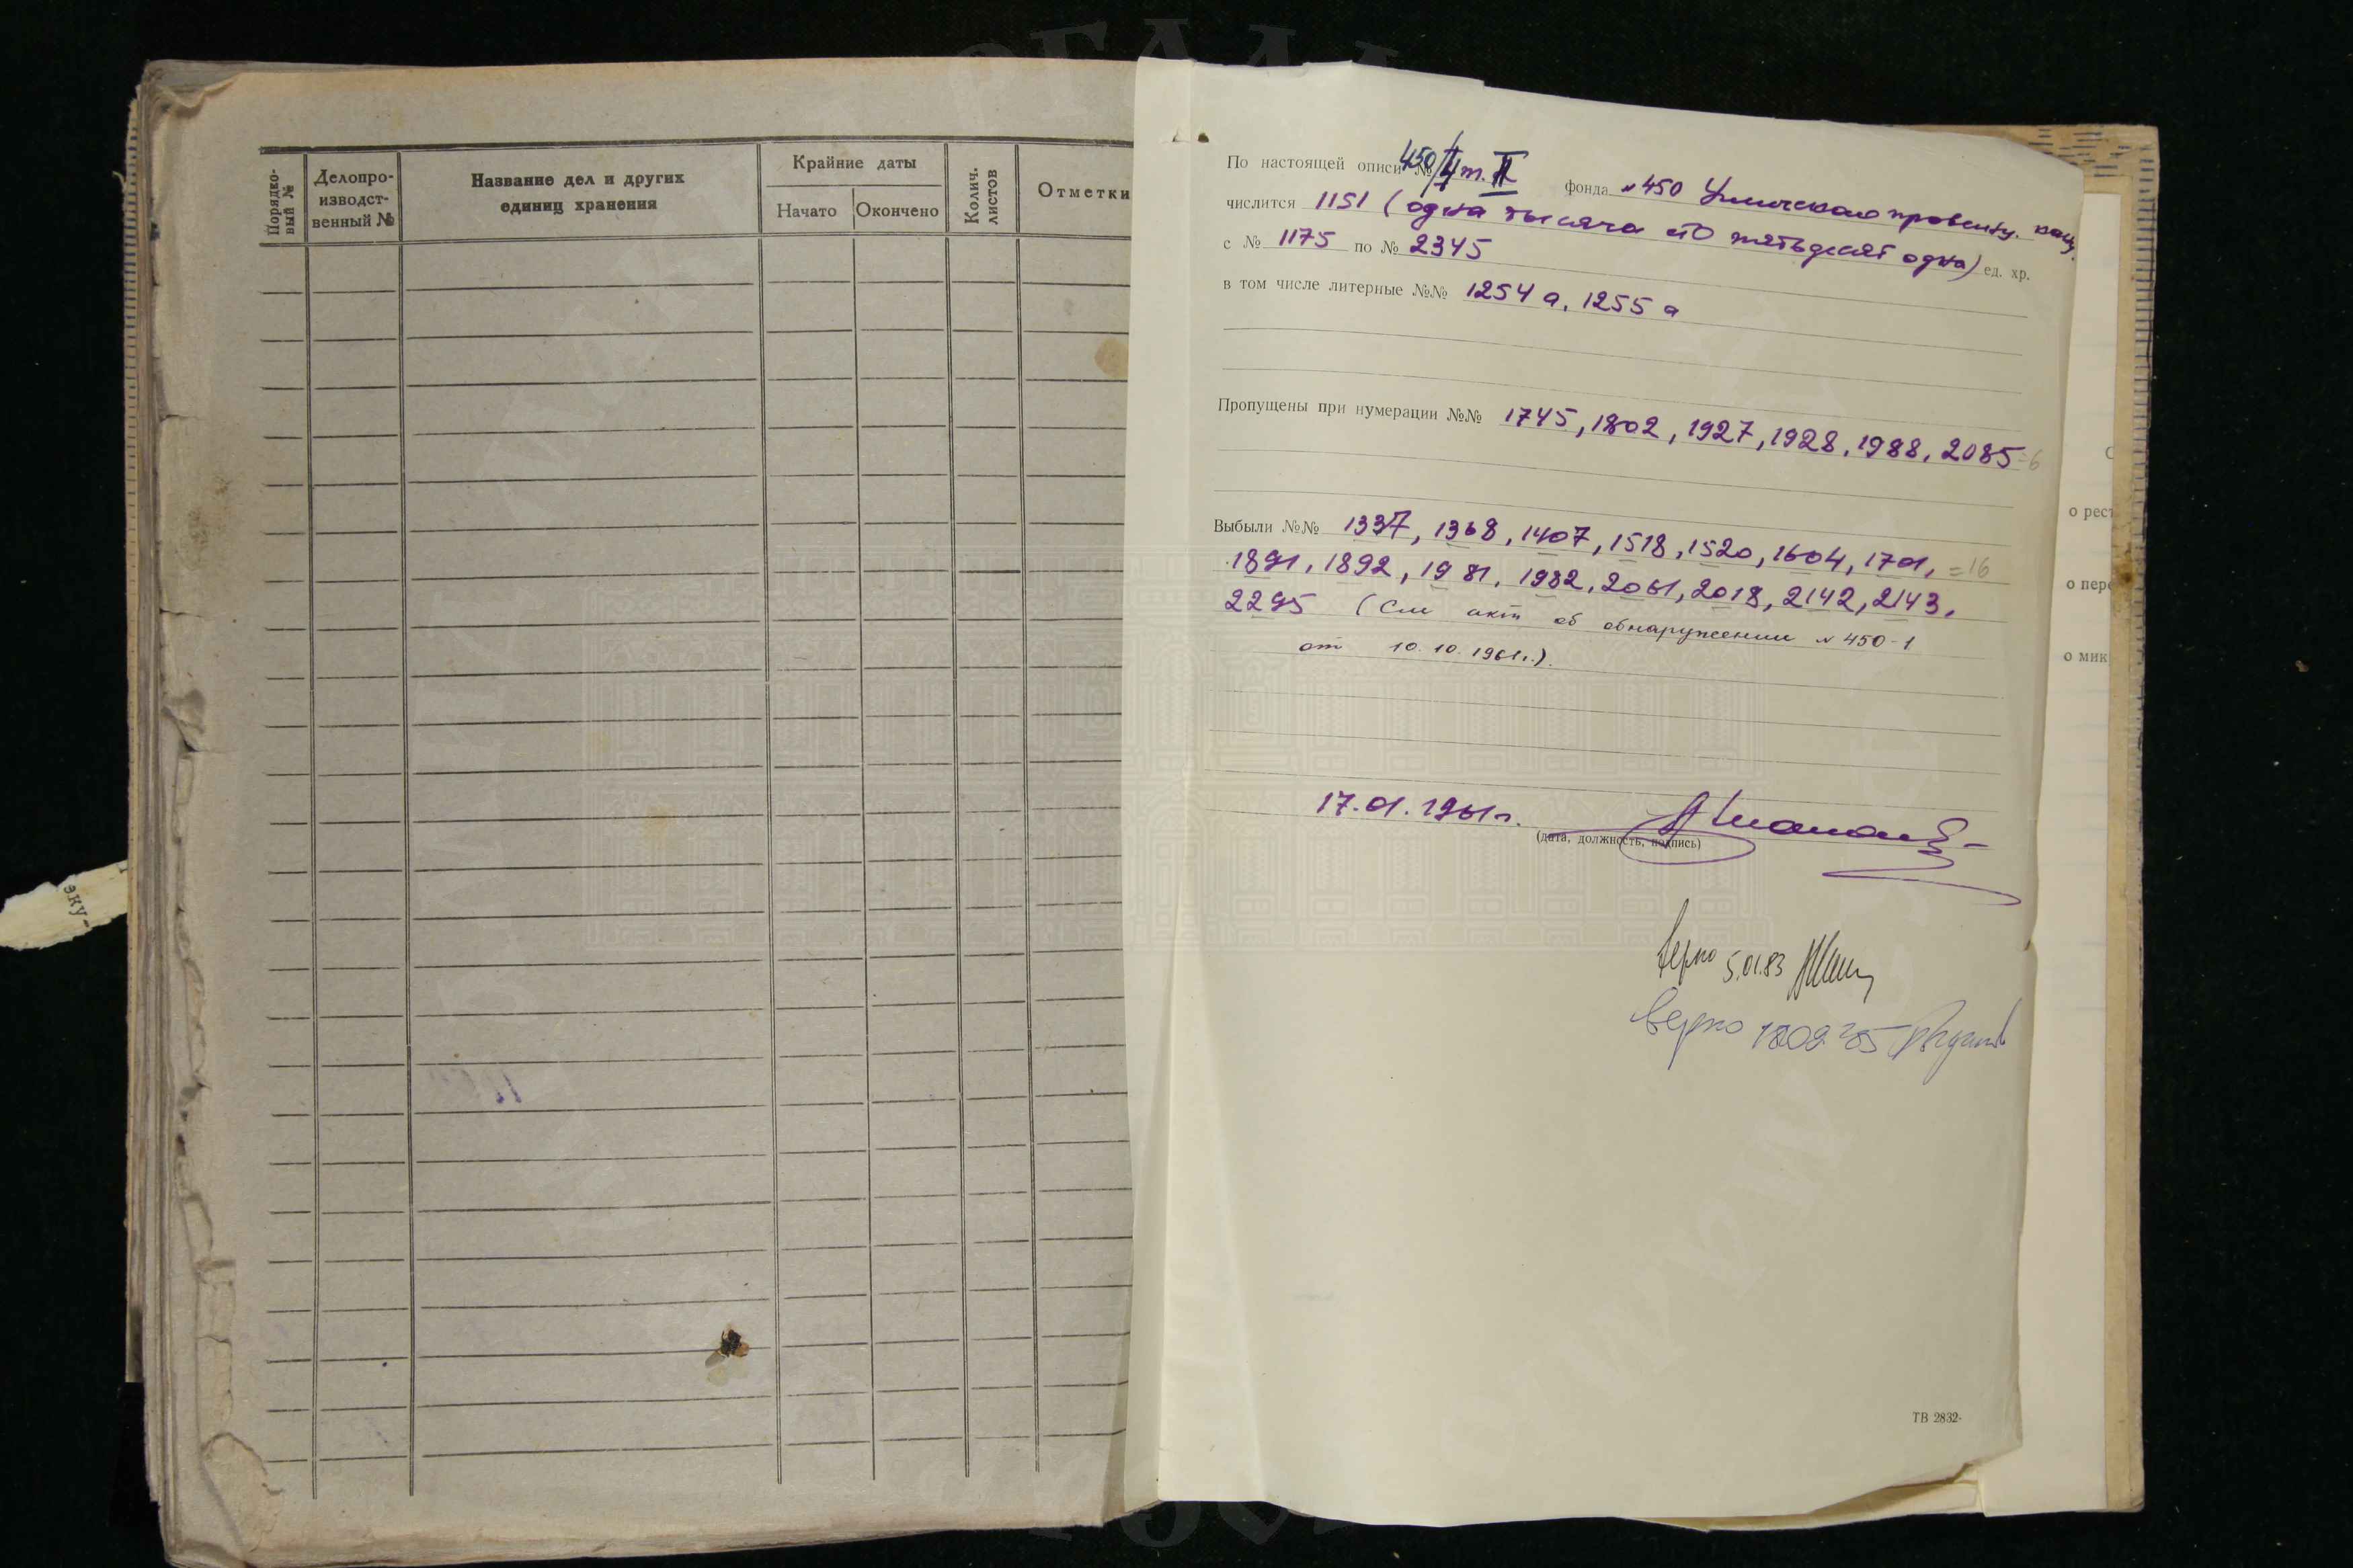 Порядко-
вый №
Делопро-
изводст-
венный №
Название дел и других
единиц хранения
Крайние даты
Начато
Окончено
Колич.
листов
Отметки
эку-
По настоящей описи № 450/4 т. II фонда №450 Угличского провинц. канц.
числится 1151 (одна тысяча сто пятьдесят одна) ед. хр.
с № 1175 по № 2345
в том числе литерные №№ 1254 а, 1255 а
Пропущены при нумерации №№ 1745, 1802, 1927, 1928, 1988, 2085 =6
Выбыли №№ 1337, 1368, 1407, 1518, 1520, 1604, 1701, =16
1891, 1892, 1981, 1982, 2061, 2018, 2142, 2143,
2295 (См акт об обнаружении №450-1
от 10.10.1961г.).
17.01.1961г.
(дата, должность, подпись)
Верно 5.01.83
Верно
ТВ 2832
о рест
о пере
о мик